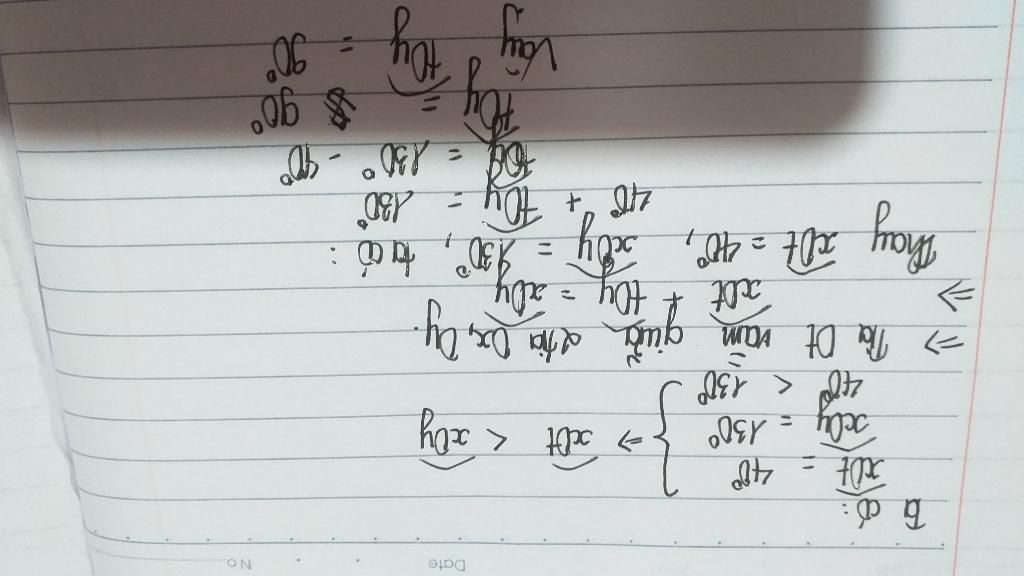 No. Date
Ta có:
xOt = 40°
xOy = 130°
40° < 130°
⇒ xOt < xOy
⇒ Tia Ot nằm giữa 2 tia Ox, Oy.
⇒ xOt + tOy = xOy
Thay xOt = 40°, xOy = 130°, ta có:
40° + tOy = 130°
tOy = 130° - 40°
tOy = 90°
Vậy tOy = 90°